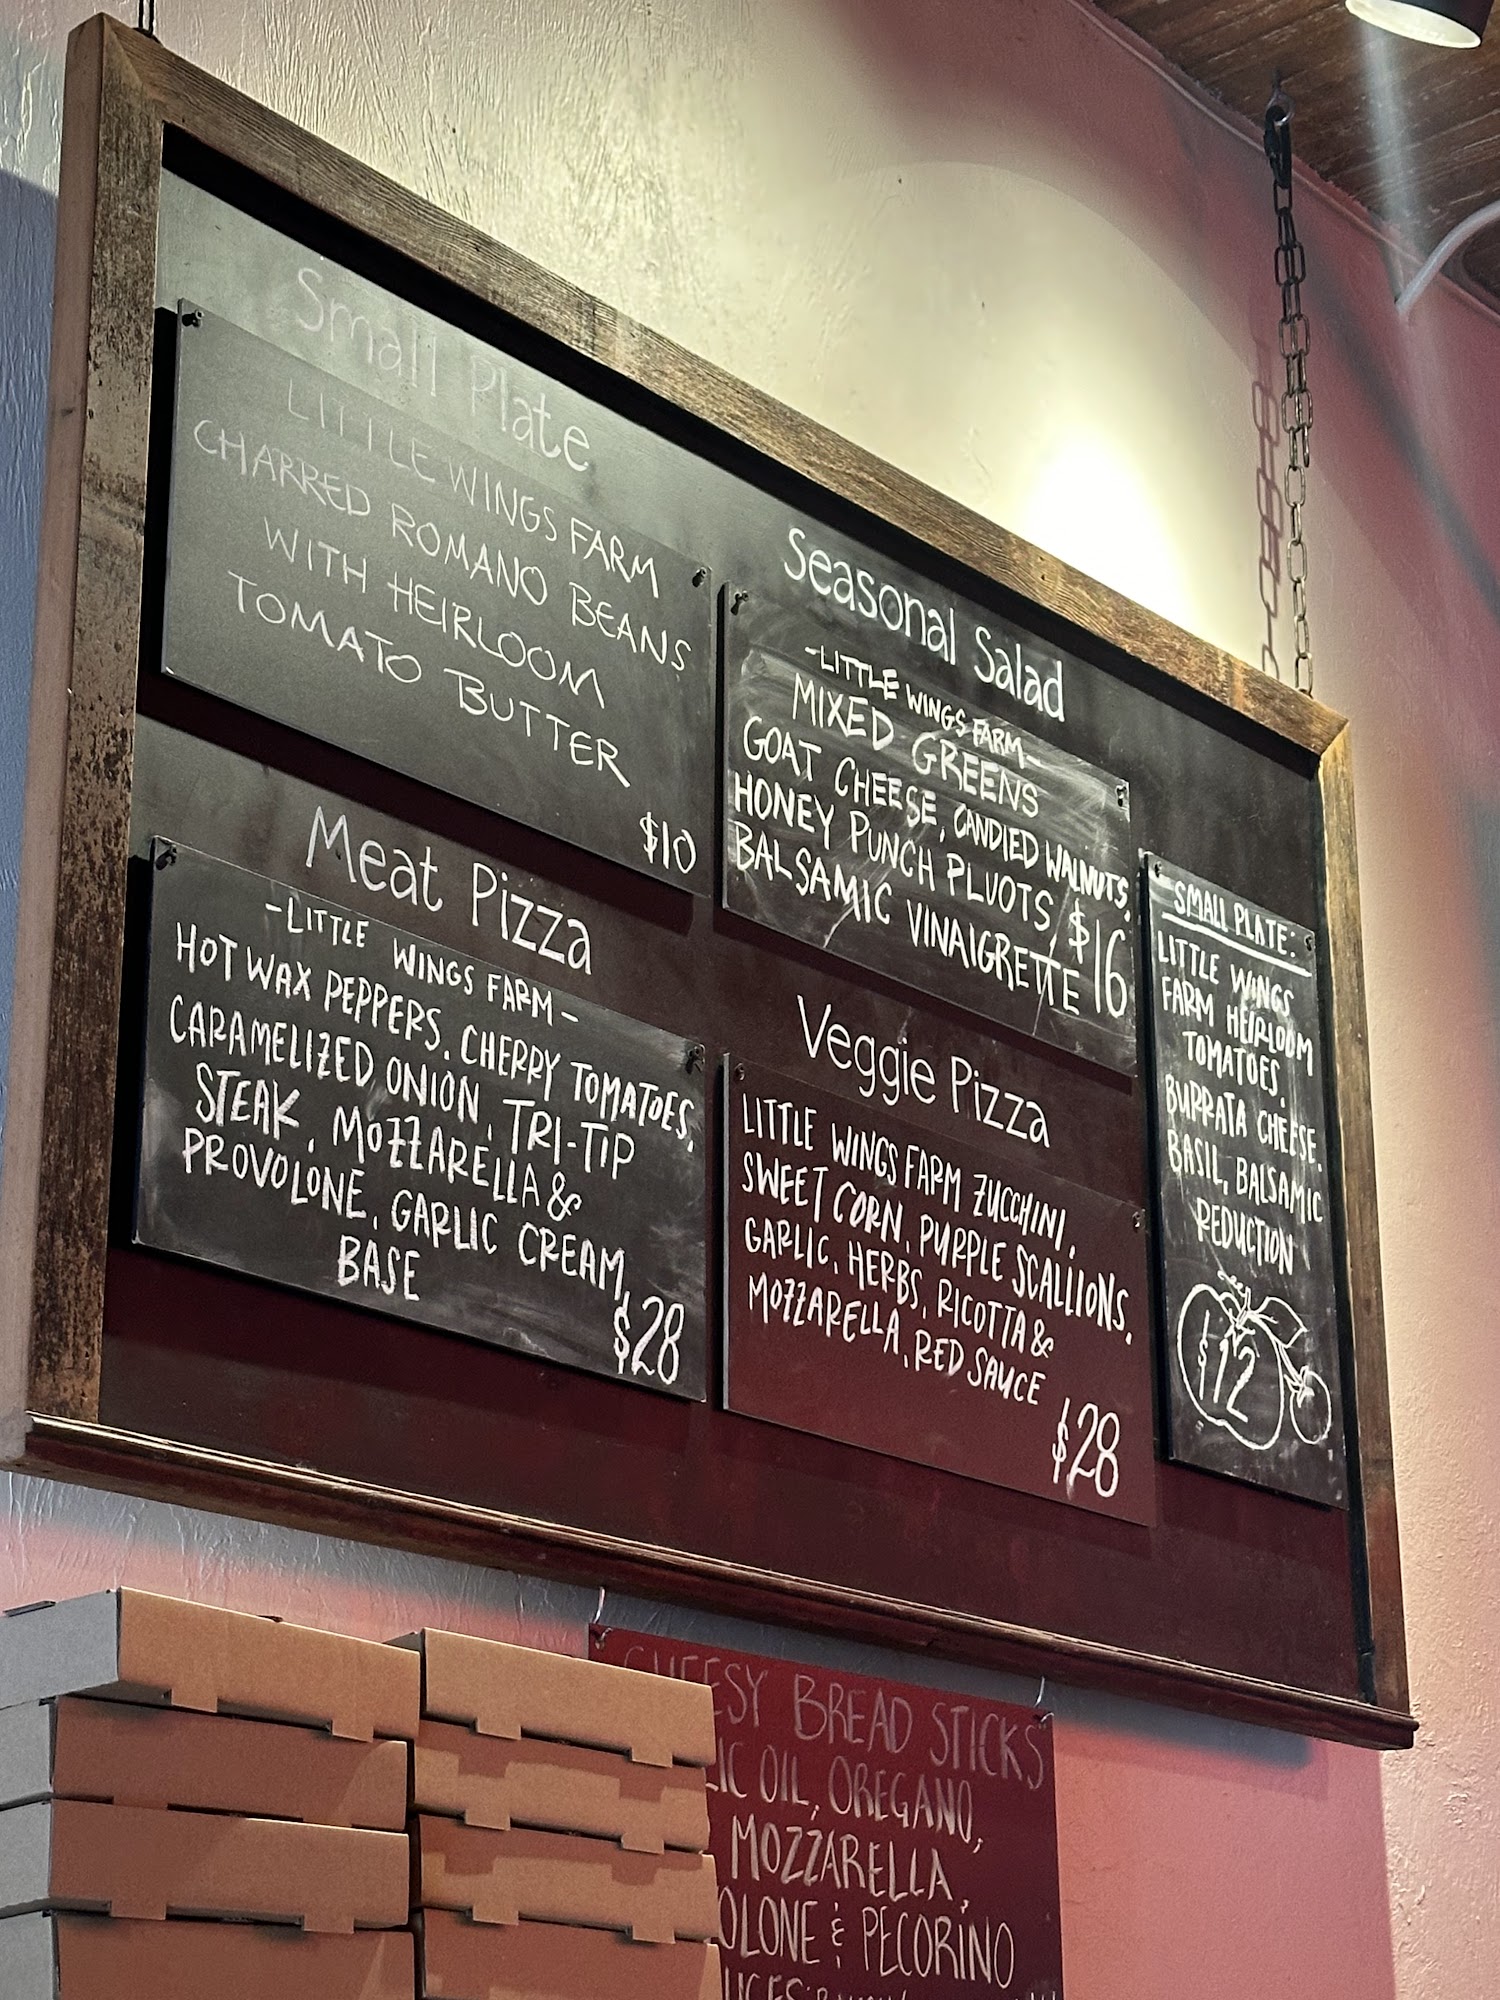 Small Plate
LITTLE WINGS FARM
CHARRED ROMANO BEANS
WITH HEIRLOOM
TOMATO BUTTER
$10
Seasonal Salad
-LITTLE WINGS FARM-
MIXED GREENS
GOAT CHEESE, CANDIED WALNUTS,
HONEY PUNCH PLUOTS,
BALSAMIC VINAIGRETTE
$16
Meat Pizza
-LITTLE WINGS FARM-
HOT WAX PEPPERS, CHERRY TOMATOES,
CARAMELIZED ONION, TRI-TIP
STEAK, MOZZARELLA &
PROVOLONE, GARLIC CREAM,
BASE
$28
Veggie Pizza
LITTLE WINGS FARM ZUCCHINI,
SWEET CORN, PURPLE SCALLIONS,
GARLIC, HERBS, RICOTTA &
MOZZARELLA, RED SAUCE
$28
SMALL PLATE:
LITTLE WINGS
FARM HEIRLOOM
TOMATOES,
BURRATA CHEESE,
BASIL, BALSAMIC
REDUCTION
$12
CHEESY BREAD STICKS
OIL, OREGANO,
MOZZARELLA,
& PECORINO